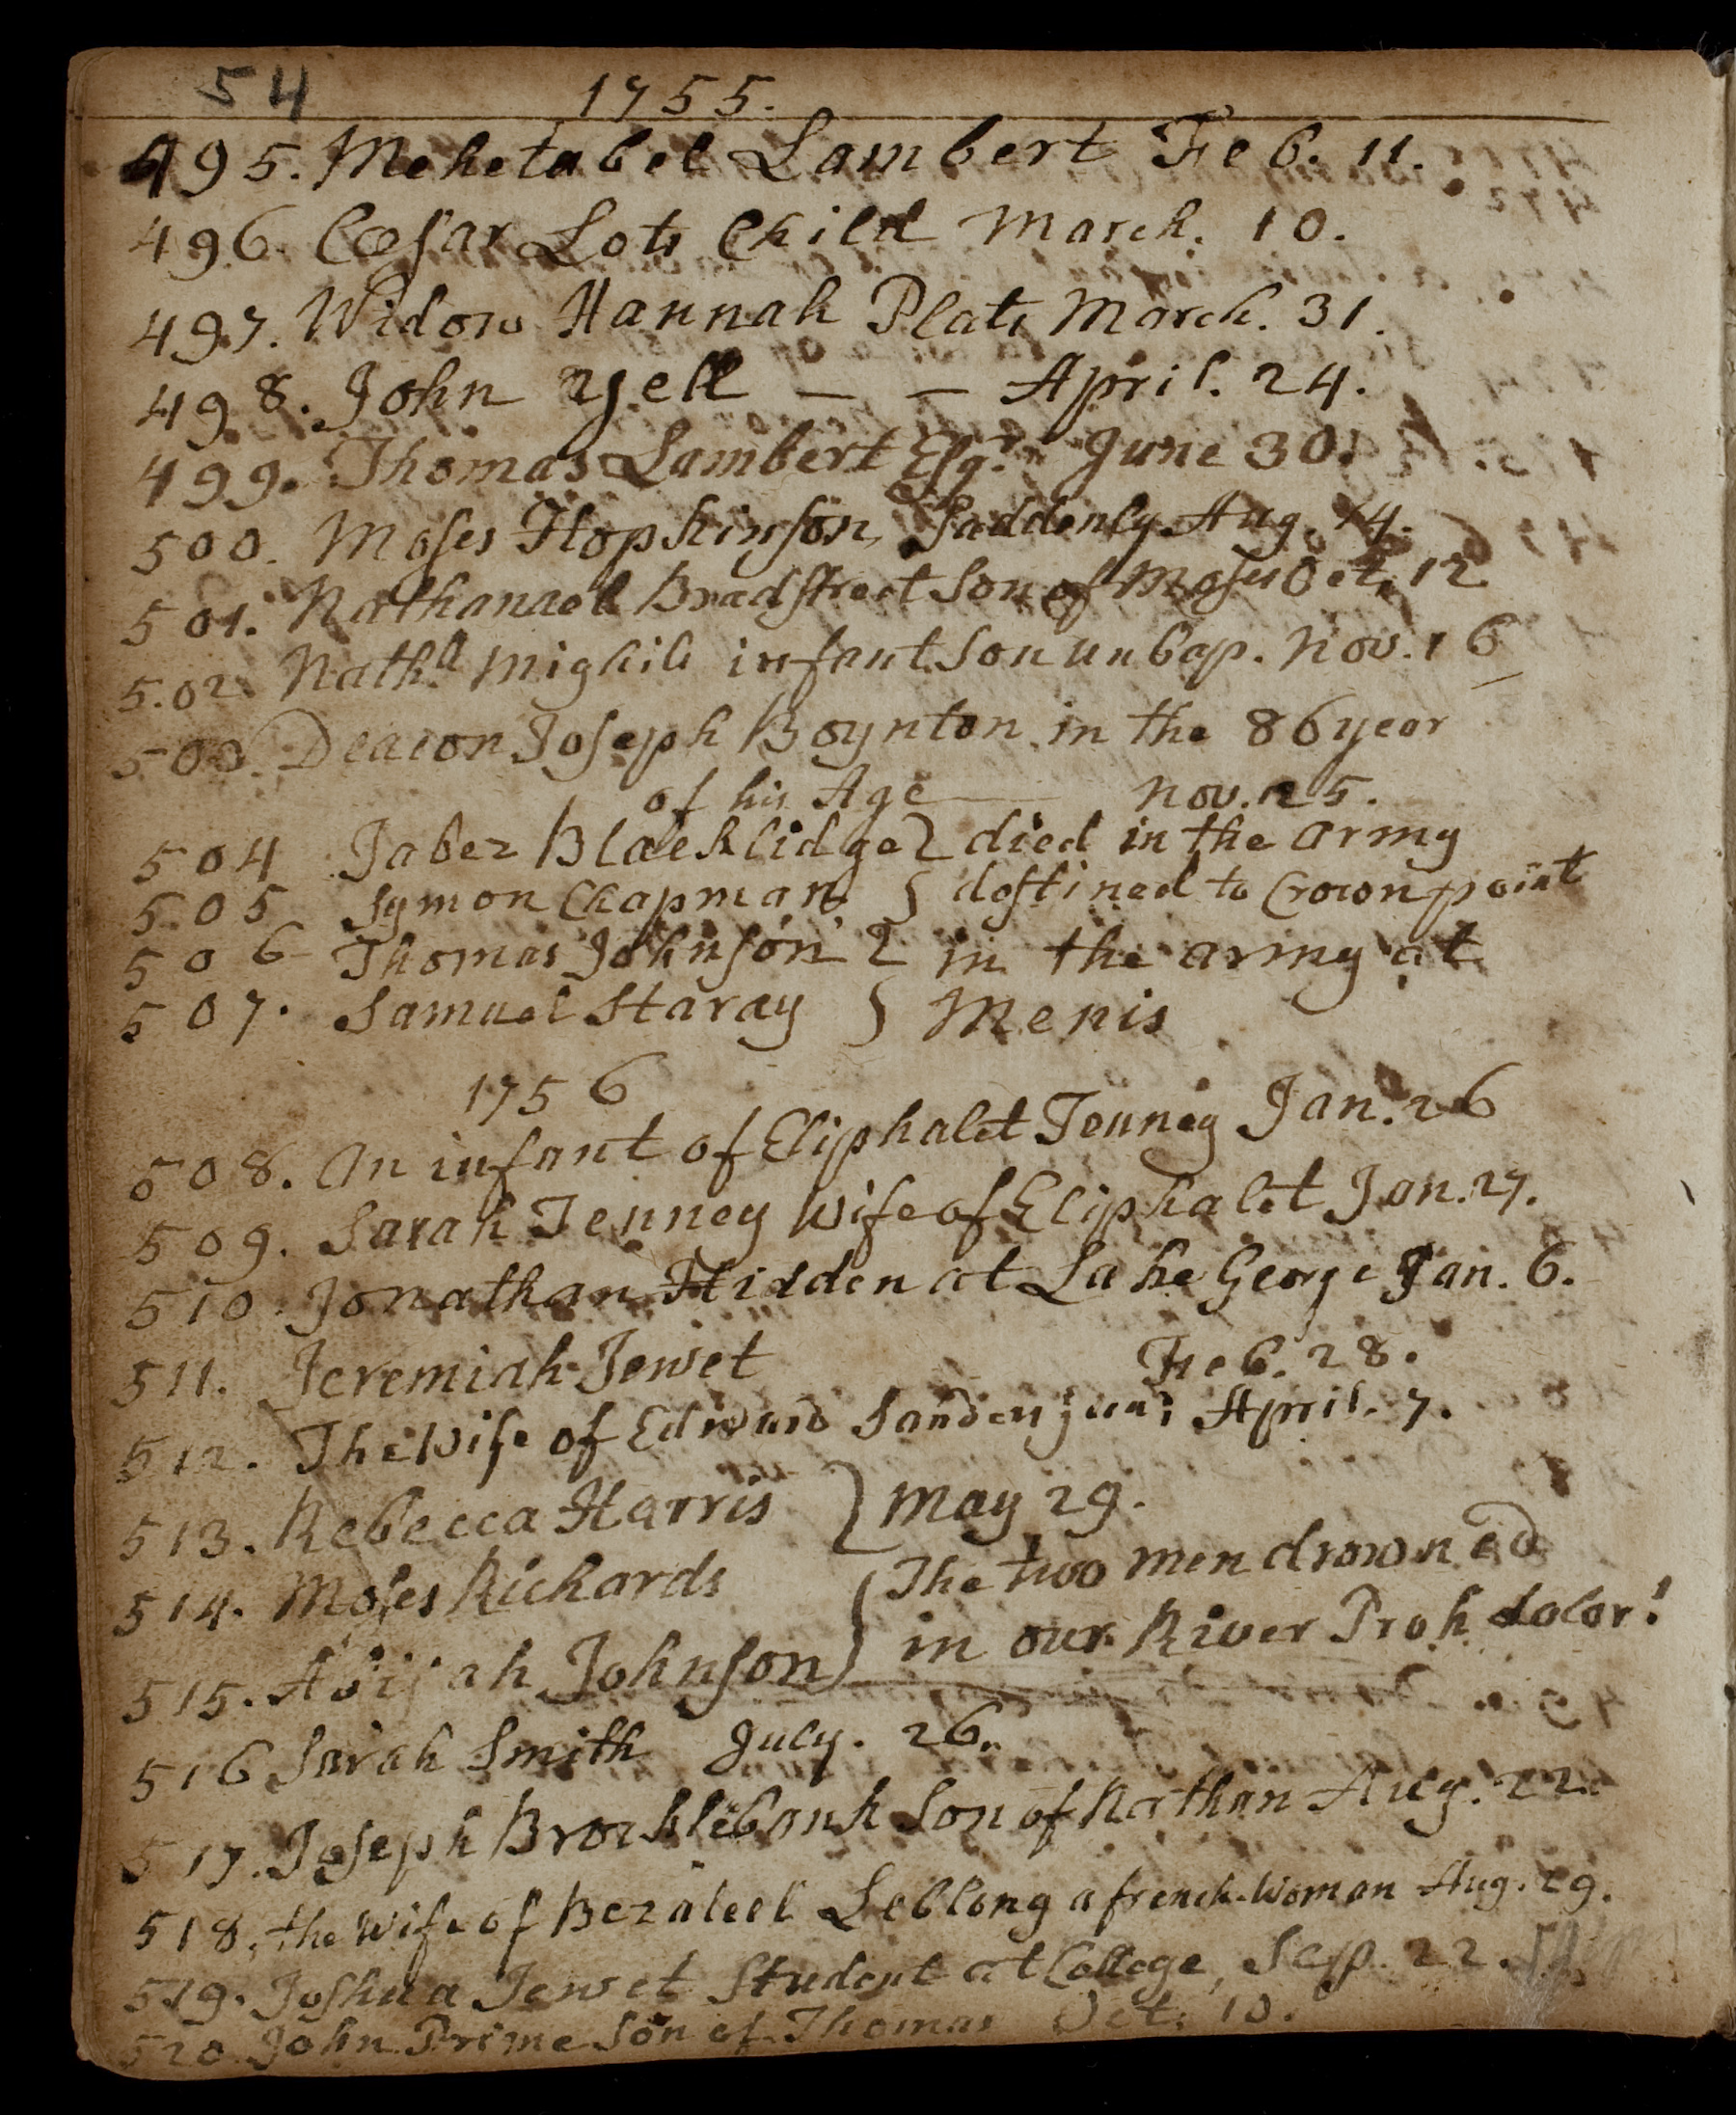 54 1755.
495. Mehetabel Lambert Feb. 11.
496. Cæsar Lots Child March. 10.
497. Widow Hannah Plats March. 31.
498. John Yell — — April. 24.
499. Thomas Lambert Esqr. June 30.
500. Moses Hopkinson, Suddenly Aug. 14.
501. Nathanael Bradstreet Son of Moses Oct. 12
502. Nathll Mighils infant Son unbap. Nov. 16
503. Deacon Joseph Boynton in the 86 year
of his Age — Nov. 25.
504 Jabez Blacklidge } died in the army
505 Symon Chapman } destined to Crown point
506 Thomas Johnson } in the army at
507. Samuel Staray } Menis
1756
508. An infant of Eliphalet Tenney Jan. 26
509. Sarah Tenney Wife of Eliphalet Jan. 27.
510. Jonathan Hidden at Lake George Jan. 6.
511. Jeremiah Jewet Feb. 28.
512. The Wife of Edward Sanders junr April. 7.
513. Rebecca Harris } May 29.
514. Moses Richards } The two men drowned
515. Abijah Johnson } in our River Proh dolor!
516 Sarah Smith July. 26.
517. Joseph Brocklebank Son of Nathan Aug. 22.
518. the Wife of Bezaleel Leblong a french-Woman Aug. 29.
519. Joshua Jewet Student at College, Sep. 22.
520 John Prime Son of Thomas Oct. 10.